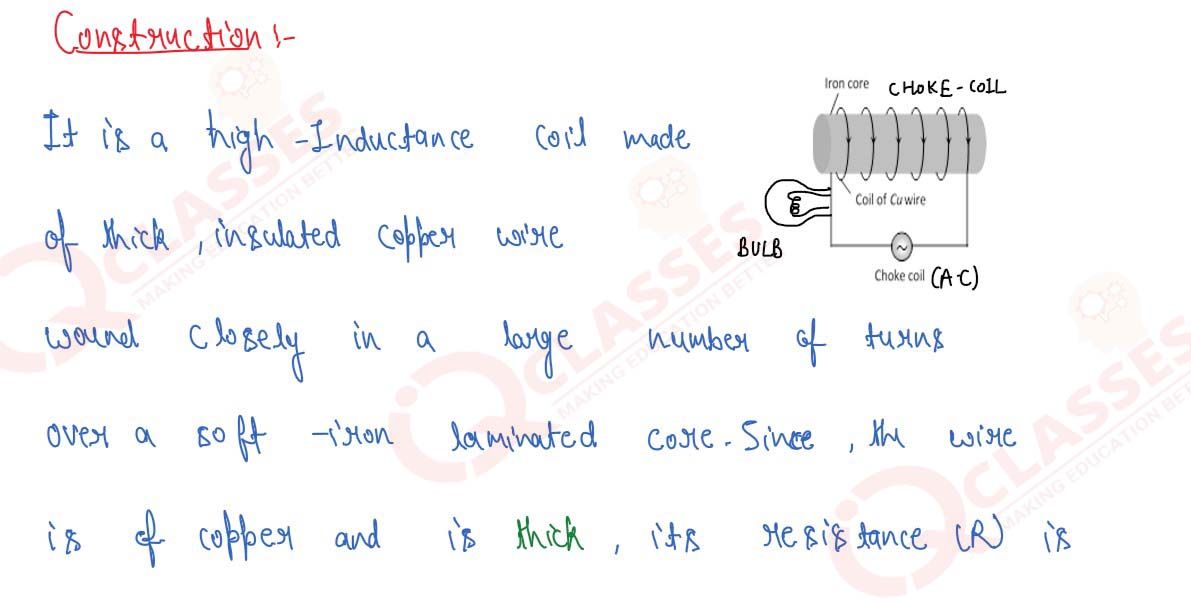 Construction :-
Iron core CHOKE-COIL
It is a high-Inductance coil made
Coil of Cu wire
of thick, insulated copper wire
BULB
Choke coil (A.C)
wound closely in a large number of turns
over a soft -iron laminated core. Since, the wire
is of copper and is thick, its resistance (R) is
IQ CLASSES
MAKING EDUCATION BETTER
IQ CLASSES
MAKING EDUCATION BETTER
IQ CLASSES
MAKING EDUCATION BETTER